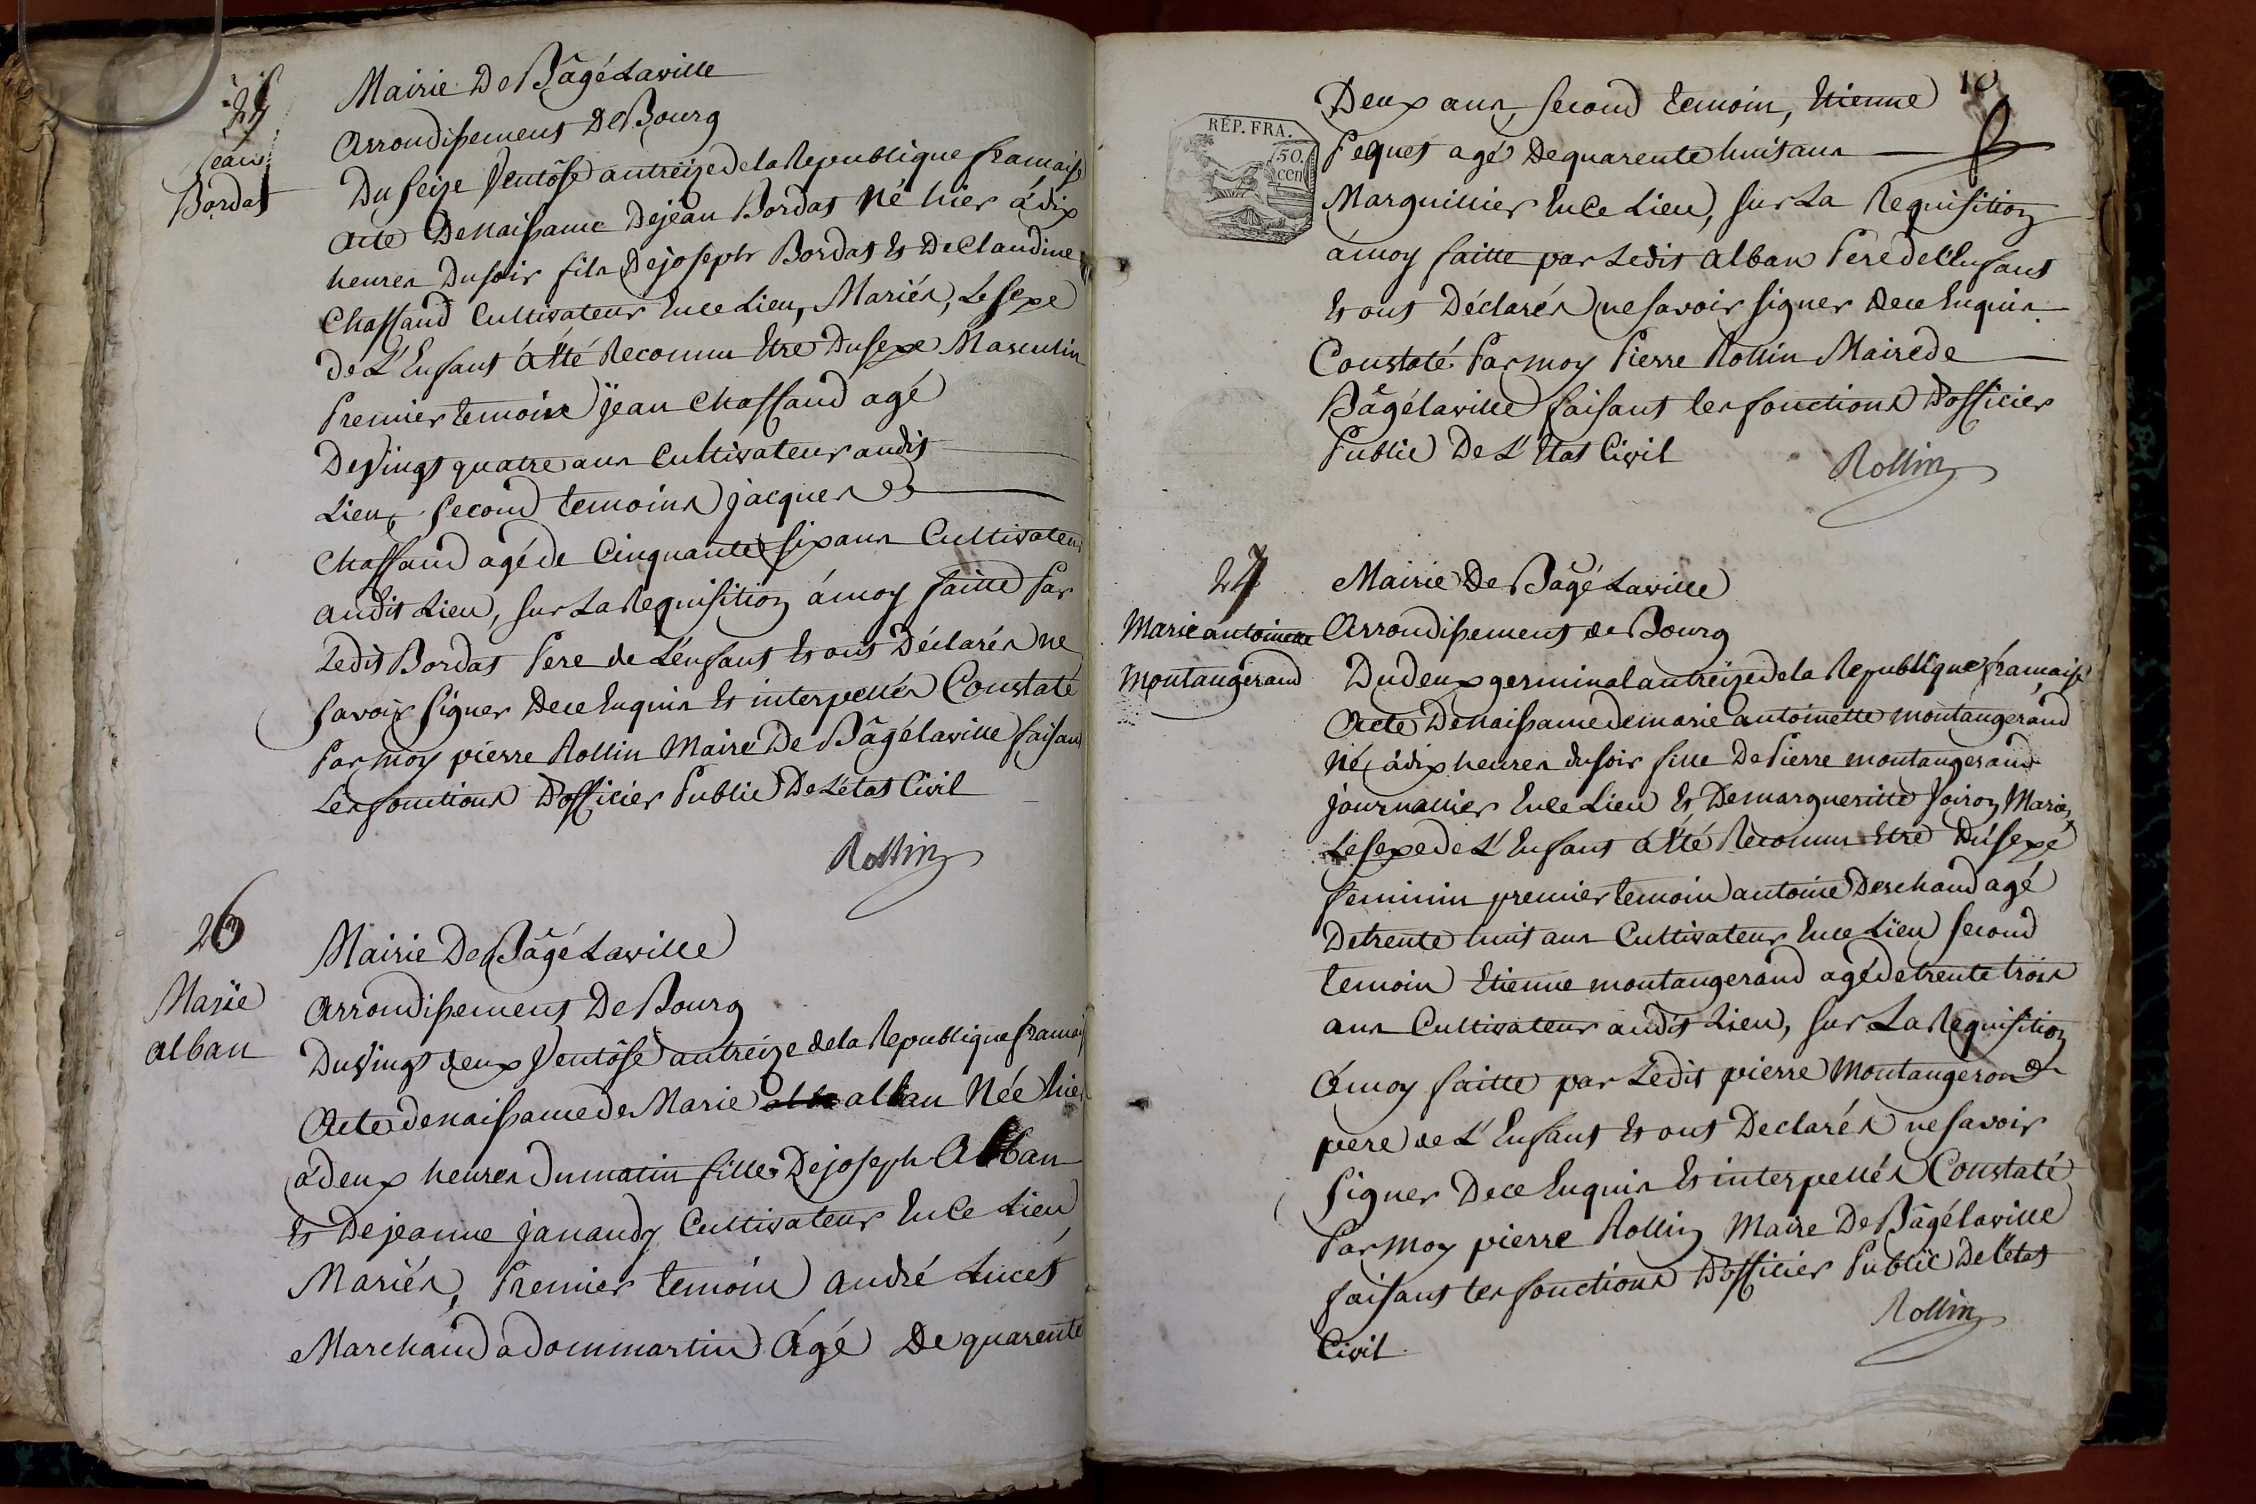 25
Jean
Bordat
Mairie De Bâgé Laville
Arrondissement De Bourg
Du seize Ventôse an treize de la Republique francaise
Acte De naissance De jean Bordat Né hier á dix
heures Du soir fils De joseph Bordat Et De Claudine
Chassaud Cultivateur En ce Lieu, Mariés, Le sexe
de L'Enfant á Eté Reconnu Etre Du sexe Masculin
Premier temoin jean Chassaud agé
De Vingt quatre ans Cultivateur audit
Lieu, second temoins jacques
Chassaud agé de Cinquante six ans Cultivateur
audit Lieu, sur La Requisition á moy faitte Par
Ledit Bordat Pere de L'enfant Et ont Déclarés ne
savoir signer De ce Enquis Et interpellés Constaté
Par Moy pierre Rollin Maire De Bâgélaville faisant
Les fonctions D'officier Public De L'état Civil
Rollin
26
Marie
alban
Mairie De Bâgé Laville
Arrondissement De Bourg
Du Vingt deux Ventôse an treize de la Republique francaise
Acte de naissance de Marie alban Née hier
á deux heures du matin fille De joseph Alban
Et De jeanne janaudy Cultivateur En Ce Lieu
Mariés, Premier temoin andré Lucet
Marchand a dommartin Agé De quarente
10
REP. FRA.
50.
cen
Deux ans, second temoin, Etienne
Pequet agé De quarente huit ans
Marguillier En Ce Lieu, sur La Requisition
á moy faitte par Ledit alban Pere de L'Enfant
Et ont Déclarés ne savoir signer de ce Enquis
Constaté Par moy Pierre Rollin Maire de
Bâgélaville faisant les fonctions D'officier
Public De L'Etat Civil
Rollin
27
Marie antoinette
Montangerand
Mairie De Bâgé Laville
Arrondissement de Bourg
Du deux germinal an treize de la Republique francaise
Acte De naissance de marie antoinette montangerand
Né á dix heures du soir fille De Pierre montangerand
journallier En ce Lieu Et De margueritte Voiron Mariés
Le sexe de L'Enfant á Eté Reconnu Etre Du sexe
feminin premier temoin antoine Deschaud agé
De trente huit ans Cultivateur En ce Lieu second
temoin Etienne montangerand agé de trente trois
ans Cultivateur audit Lieu, sur La Requisition
á moy faitte par Ledit pierre Montangerond
pere de L'Enfant Et ont Declarés ne savoir
signer De ce Enquis Et interpellés Constaté
Par Moy pierre Rollin Maire De Bâgélaville
faisant les fonctions D'officier Public De L'état
Civil
Rollin